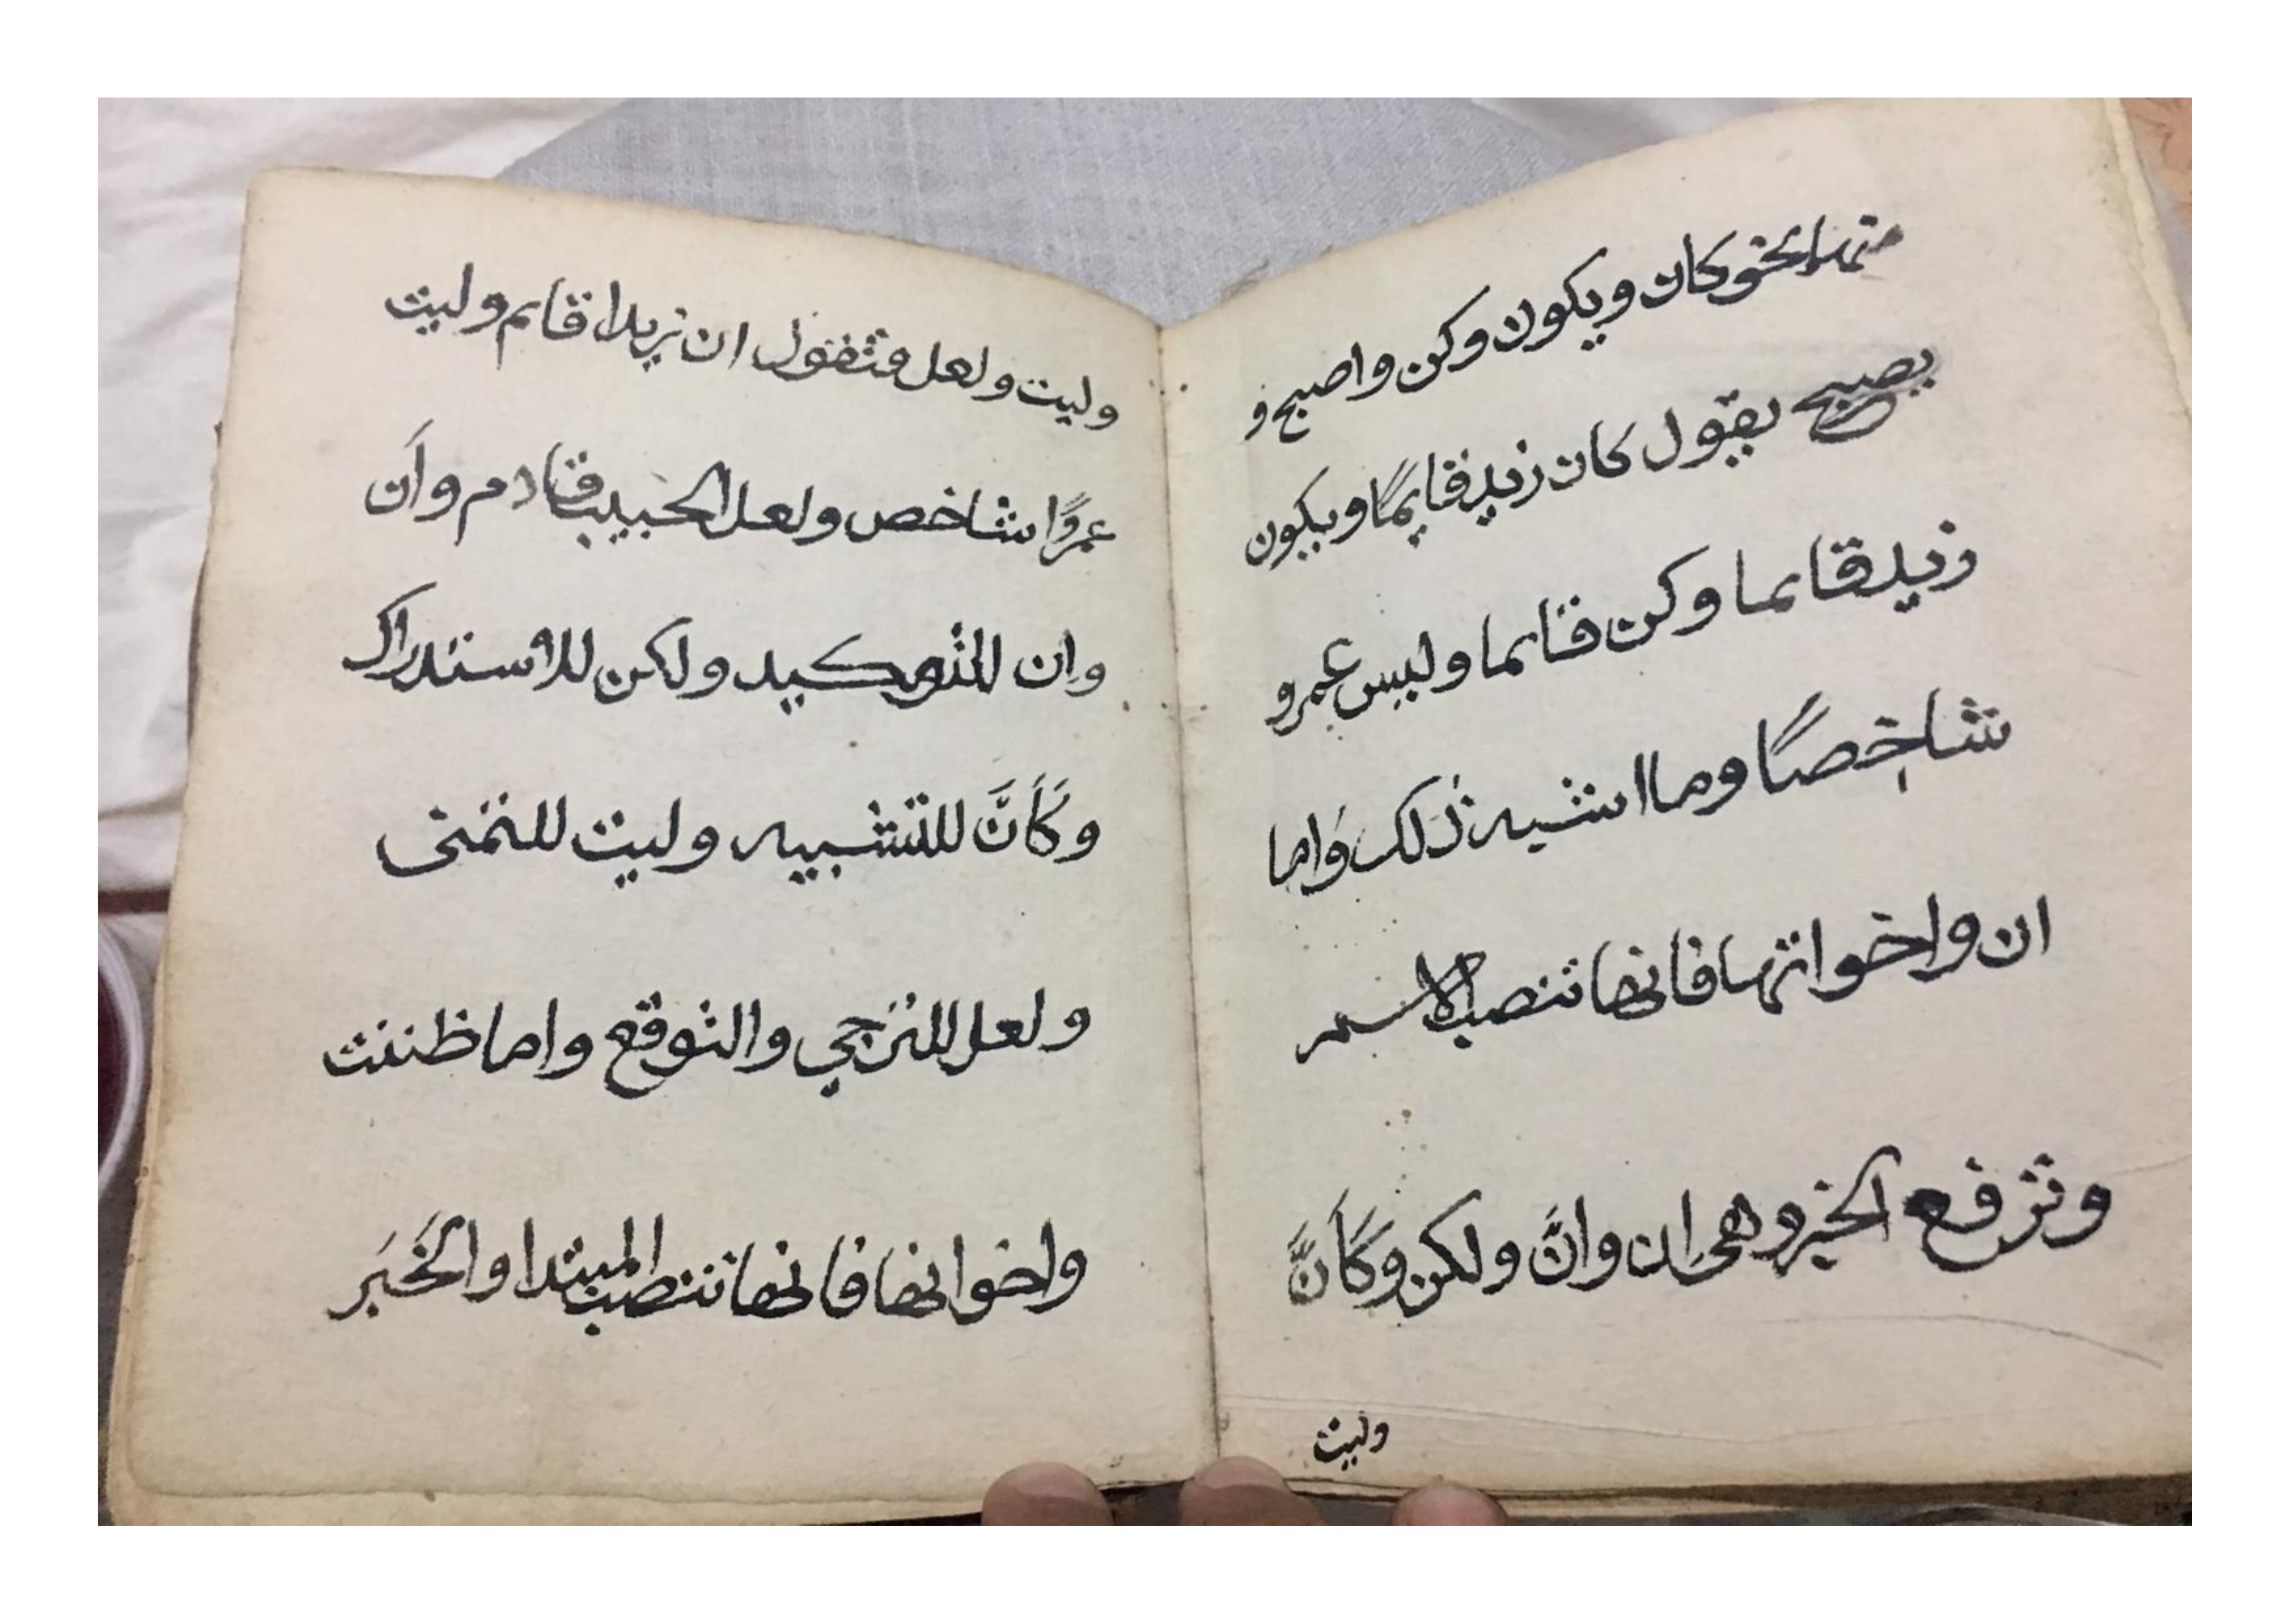 منها نحو كان ويكون وكن واصبح و
يصبح يقول كان زيد قايمًا ويكون
زيد قايما وكن قايما وليس عمرو
شاخصًا وما اشبه ذلك واما
ان واخواتها فانها تنصب الاسم
وترفع الخبر وهي ان وانَّ ولكن وكَأَنَّ
وليت
وليت ولعل فتقول ان زيدا قايم وليت
عمرًوا شاخص ولعل الحبيب قادم وأن
وان للتوكيد ولكن للاستدراك
وكَأَنَّ للتشبيه وليت للتمنى
ولعل للترجي والتوقع واما ظننت
واخواتها فانها تنصب المبتدا والخَبَر